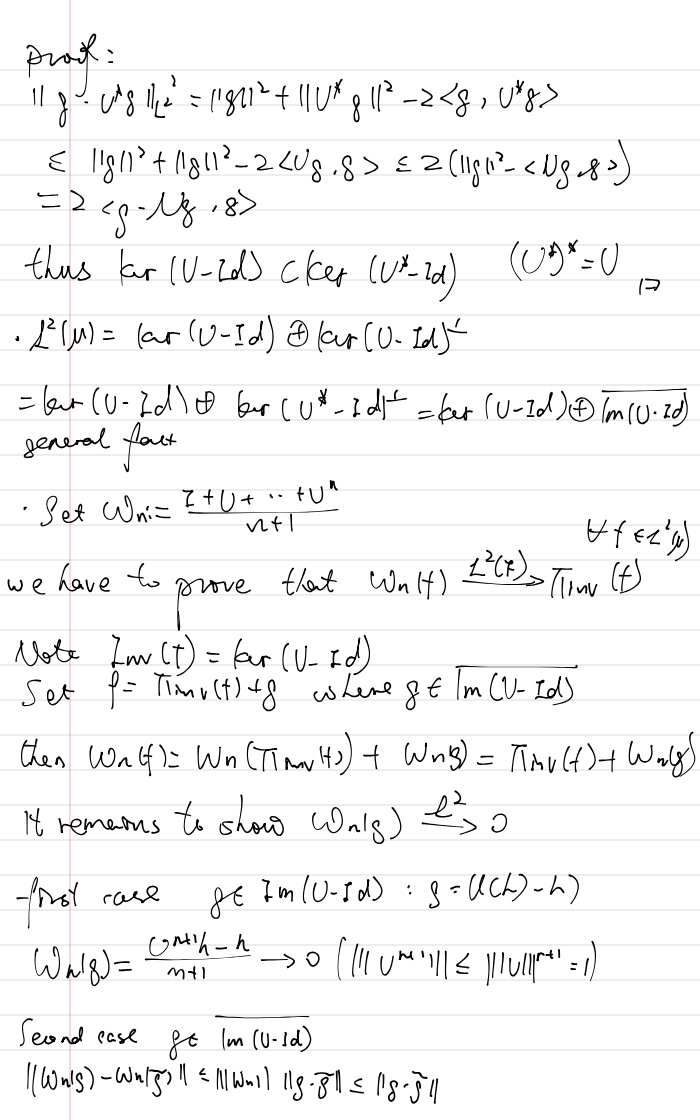 proof:
|| g - U*g ||²_{L²} = ||g||² + ||U* g||² - 2<g, U*g>
≤ ||g||² + ||g||² - 2<Ug, g> ≤ 2(||g||² - <Ug, g>)
= 2 <g - Ug, g>
thus ker (U-Id) ⊂ ker (U*-Id) (U*)* = U □
· L²(μ) = ker (U-Id) ⊕ ker (U-Id)^⊥
= ker (U-Id) ⊕ ker (U*-Id)^⊥ = ker (U-Id) ⊕ \overline{Im(U-Id)}
general fact
· Set Wn := \frac{I+U+ ·· +U^n}{n+1}
∀ f ∈ L²(μ)
we have to prove that Wn(f) \xrightarrow{L²(μ)} Π_{inv}(f)
Note Inv(f) = ker (U-Id)
Set f = Π_{inv}(f) + g where g ∈ \overline{Im(U-Id)}
then Wn(f) = Wn(Π_{inv}(f)) + Wn(g) = Π_{inv}(f) + Wn(g)
It remains to show Wn(g) \xrightarrow{L²} 0
- first case g ∈ Im(U-Id) : g = U(h) - h)
Wn(g) = \frac{U^{n+1}h - h}{n+1} → 0 (|||U^{n+1}||| ≤ |||U|||^{n+1} = 1)
Second case g ∈ \overline{Im(U-Id)}
||Wn(g) - Wn(\tilde{g})|| ≤ |||Wn||| ||g - \tilde{g}|| ≤ ||g - \tilde{g}||